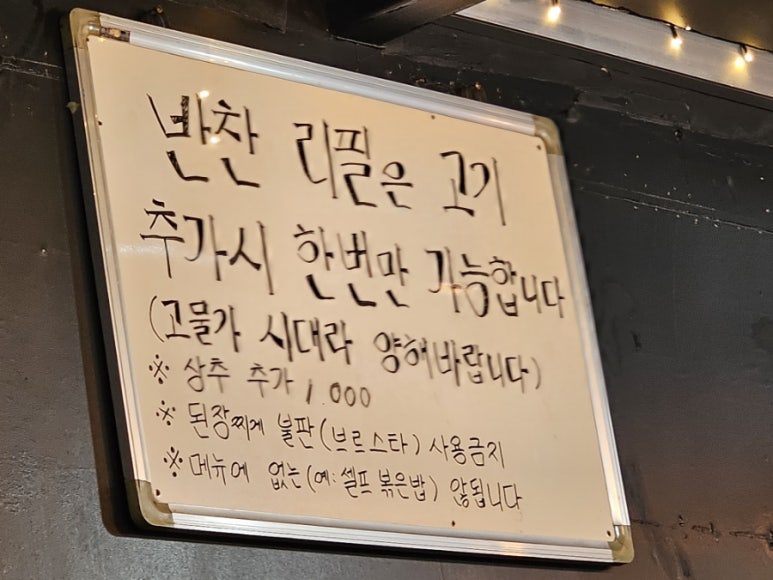 반찬 리필은 고기
추가시 한번만 가능합니다
(고물가 시대라 양해바랍니다)
※ 상추 추가 1.000
※ 된장찌게 불판(브르스타) 사용금지
※ 메뉴에 없는(예:셀프볶은밥) 않됩니다